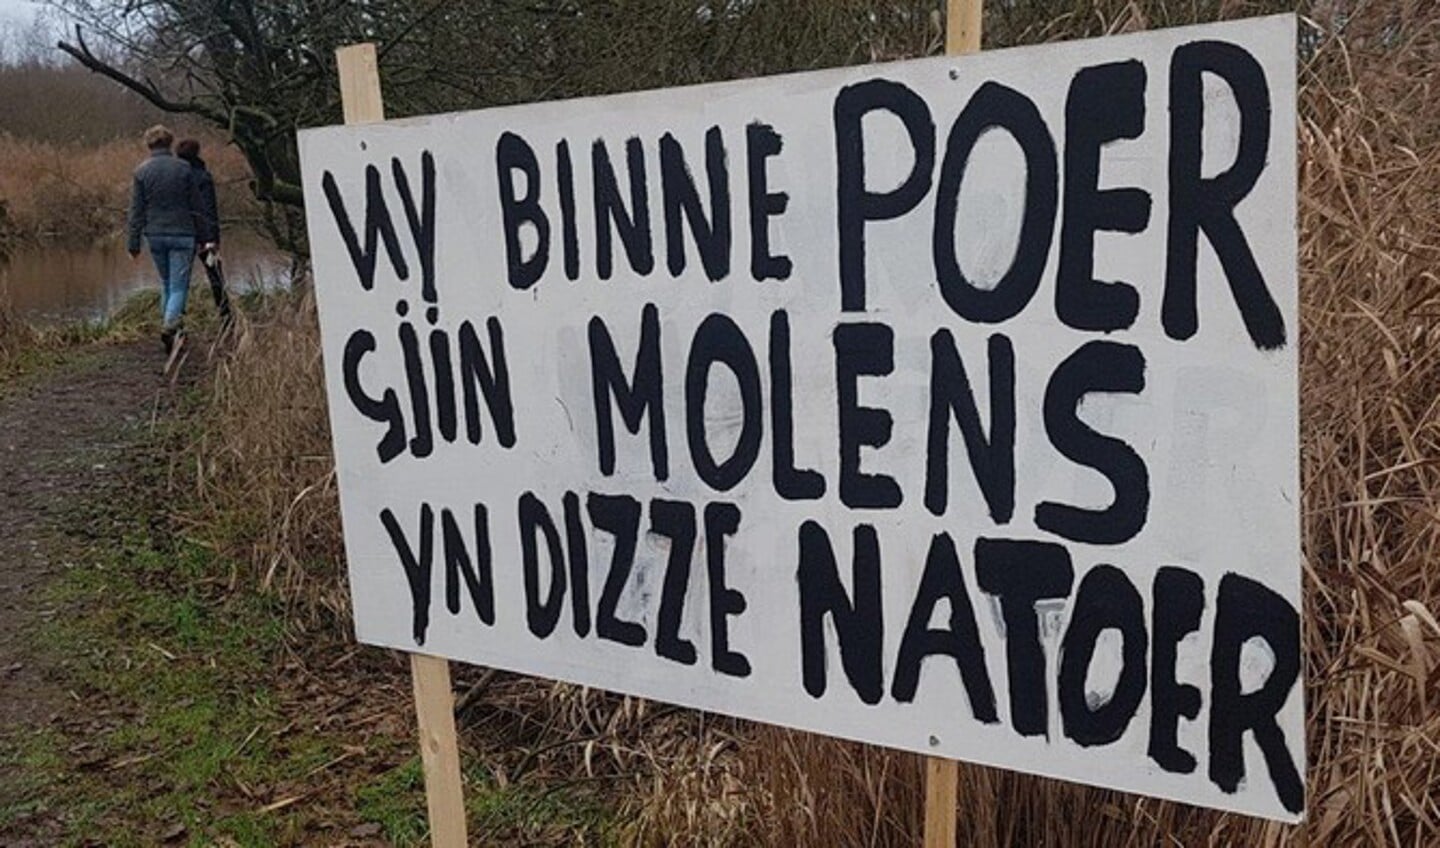 WY BINNE POER
GJIN MOLENS
YN DIZZE NATOER